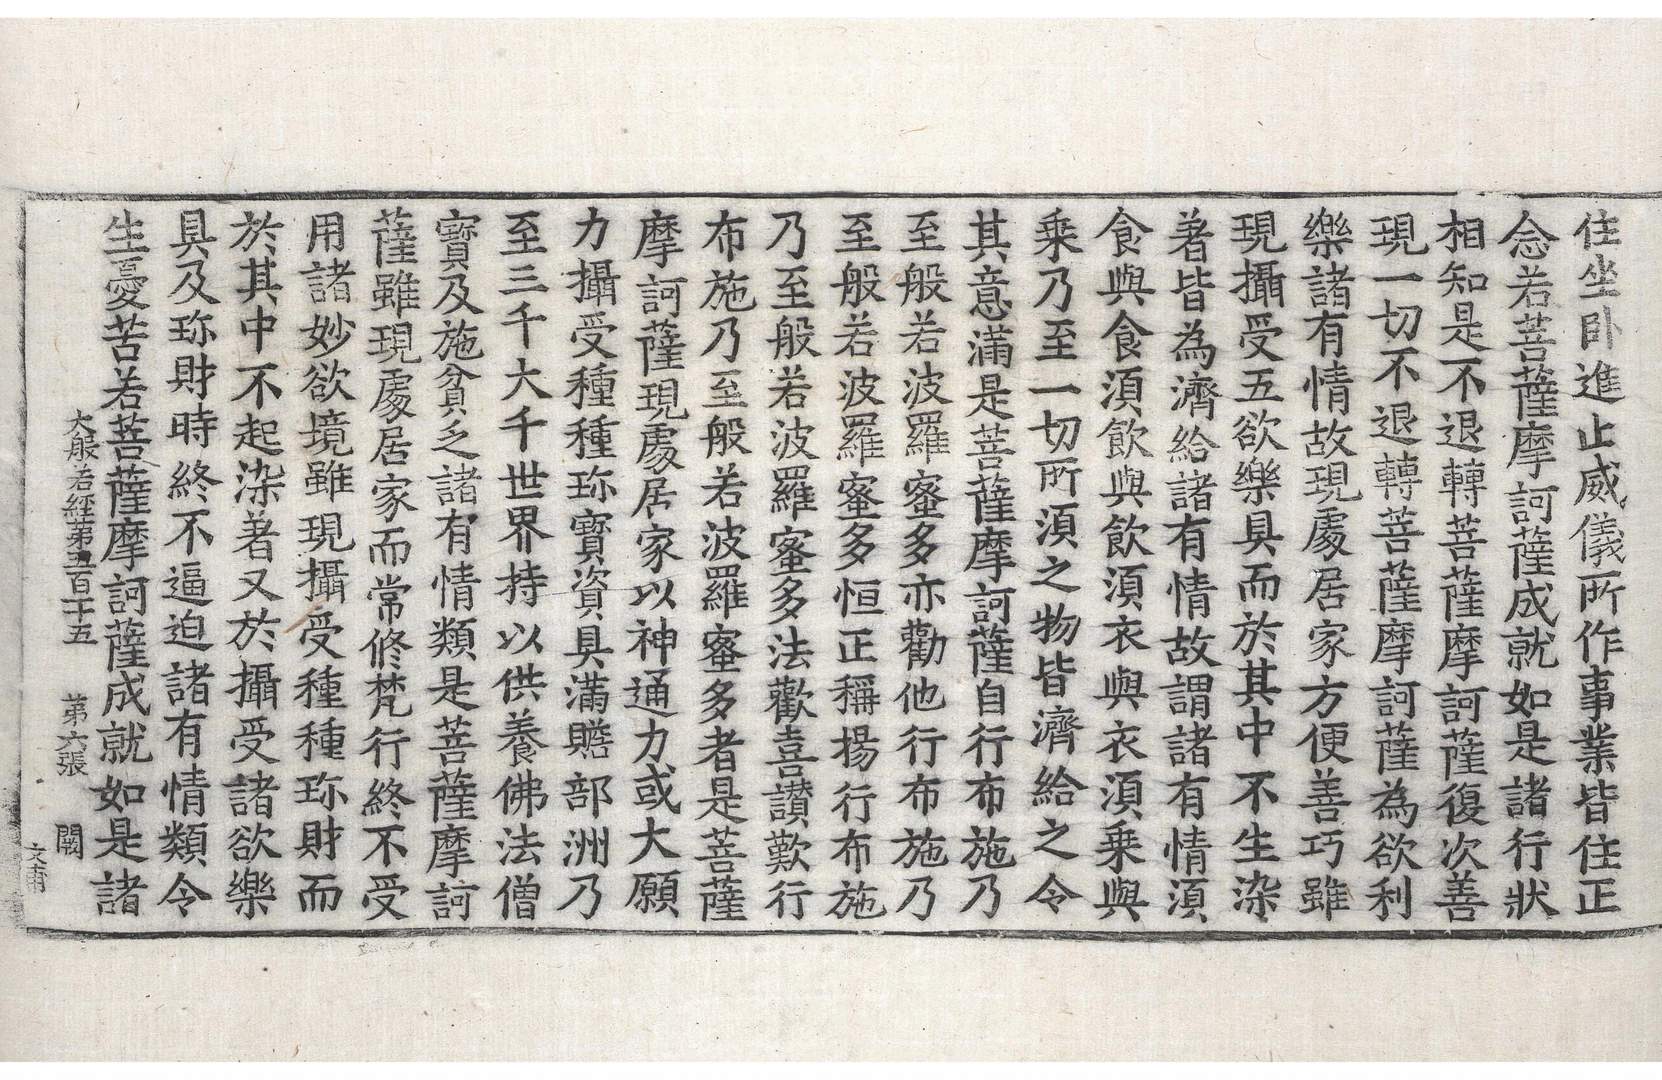 住坐卧進止威儀所作事業皆住正
念若菩薩摩訶薩成就如是諸行狀
相知是不退轉菩薩摩訶薩復次善
現一切不退轉菩薩摩訶薩為欲利
樂諸有情故現處居家方便善巧雖
現攝受五欲樂具而於其中不生染
著皆為濟給諸有情故謂諸有情湏
食與食湏飲與飲湏衣與衣湏乗與
乗乃至一切所湏之物皆濟給之令
其意滿是菩薩摩訶薩自行布施乃
至般若波羅蜜多亦勸他行布施乃
至般若波羅蜜多恒正稱揚行布施
乃至般若波羅蜜多法歡喜讃歎行
布施乃至般若波羅蜜多者是菩薩
摩訶薩現處居家以神通力或大願
力攝受種種珎寳資具滿贍部洲乃
至三千大千世界持以供養佛法僧
寳及施貧乏諸有情類是菩薩摩訶
薩雖現處居家而常修梵行終不受
用諸妙欲境雖現攝受種種珎財而
於其中不起染著又於攝受諸欲樂
具及珎財時終不逼迫諸有情類令
生憂苦若菩薩摩訶薩成就如是諸
大般若經第五百十五 第六張 闕